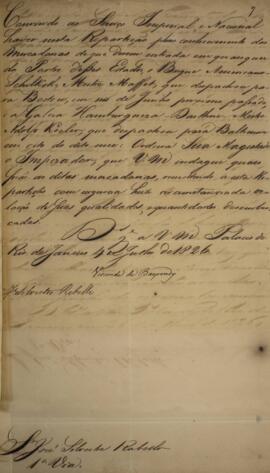 Convindo ao Serviço Imperial e Nacional
haver nesta Repartição pleno conhecimento das
Mercadorias de que derem entrada em quaesquer
do Portos desses Estados, o Brigue Americano
Schylkill, Mestre Maffet, que despachou pa
ra Boston, em de Junho proximo passado
e a Galera Hamburgueza Mestre
Adolf que despachou para Baltimore
em oito do dito mez: Ordena Sua Magestade
o Imperador, que V Mce indague quaes
forão as ditas mercadorias, remettendo a esta Re
partição com urgencia huma circumstanciada re
lação de suas qualidades, e quantidades desembar
cadas.
D.s G.e a V Mce Palacio do
Rio de Janeiro 4 de Julho de 1826
Visconde de
S.r José Silvestre Rebello
1.a Via.